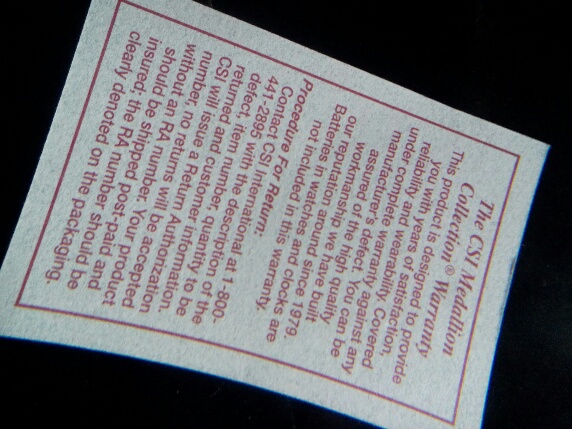 The CSI Medallion
Collection® Warranty
This product is designed to provide
you with years of satisfaction,
reliability and wearability. Covered
under complete warranty against any
manufacturer's defect. You can be
assured of the high quality
workmanship we have built
our reputation around since 1979.
Batteries in watches and clocks are
not included in this warranty.
Procedure For Return:
Contact CSI International at 1-800-
441-2895 with the description of
defect, item number, quantity to be
returned and customer information
CSI will issue a Return Authorization
number, no returns will be accepted
without an RA number. Your product
should be shipped post-paid and
insured, the RA number should be
clearly denoted on the packaging.